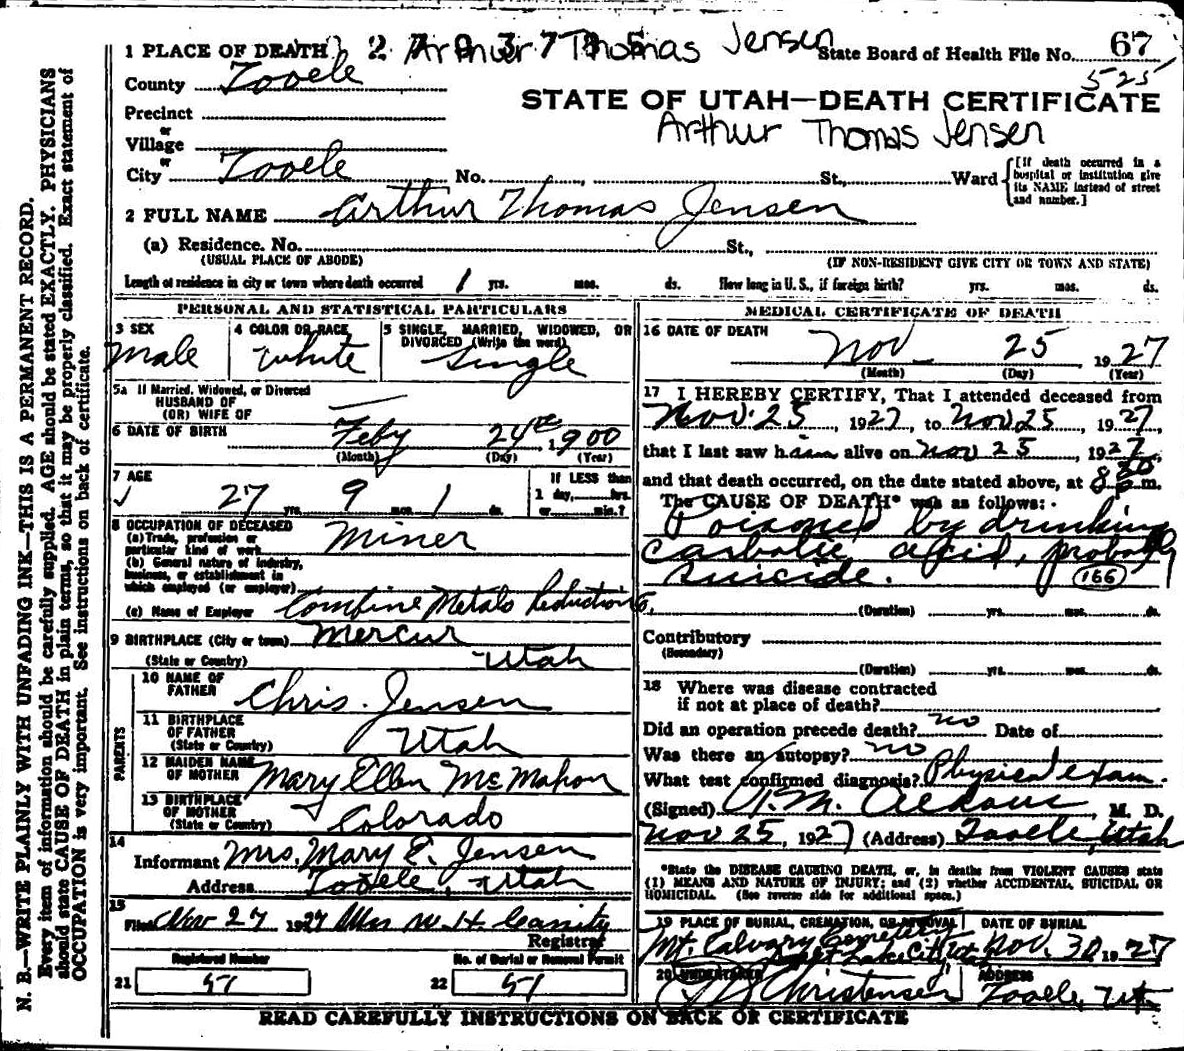 1 PLACE OF DEATH 2 7 0 3 7 Arthur Thomas Jensen State Board of Health File No. 67
County Tooele 525
STATE OF UTAH—DEATH CERTIFICATE
Precinct
Arthur Thomas Jensen
or
Village
or
City Tooele No. , St., Ward [If death occurred in a hospital or institution give its NAME instead of street and number.]
2 FULL NAME Arthur Thomas Jensen
(a) Residence. No. St.,
(USUAL PLACE OF ABODE) (IF NON-RESIDENT GIVE CITY OR TOWN AND STATE)
Length of residence in city or town where death occurred 1 yrs. mos. ds. How long in U. S., if foreign birth? yrs. mos. ds.
PERSONAL AND STATISTICAL PARTICULARS
3 SEX 4 COLOR OR RACE 5 SINGLE, MARRIED, WIDOWED, OR
DIVORCED (Write the word)
Male White Single
5a If Married, Widowed, or Divorced
HUSBAND OF
(OR) WIFE OF
6 DATE OF BIRTH Feby 24th, 1900
(Month) (Day) (Year)
7 AGE If LESS than
27 yrs. 9 mos. 1 ds. 1 day, hrs.
or min.?
8 OCCUPATION OF DECEASED
(a) Trade, profession or
particular kind of work Miner
(b) General nature of industry,
business, or establishment in
which employed (or employer)
(c) Name of Employer Combine Metals Reduction Co.
9 BIRTHPLACE (City or town) Mercur
(State or Country) Utah
PARENTS
10 NAME OF
FATHER Chris. Jensen
11 BIRTHPLACE
OF FATHER
(State or Country) Utah
12 MAIDEN NAME
OF MOTHER Mary Ellen McMahon
13 BIRTHPLACE
OF MOTHER
(State or Country) Colorado
14
Informant Mrs. Mary E. Jensen
Address Tooele, Utah
15
Filed Nov 27 1927 Mrs W. H. Cassity
Registrar
Registered Number No. of Burial or Removal Permit
21 51 22 51
MEDICAL CERTIFICATE OF DEATH
16 DATE OF DEATH
Nov 25 1927
(Month) (Day) (Year)
17 I HEREBY CERTIFY, That I attended deceased from
Nov. 25, 1927, to Nov 25, 1927,
that I last saw him alive on Nov 25, 1927,
and that death occurred, on the date stated above, at 8 30 m.
The CAUSE OF DEATH* was as follows:
Poisoned by drinking
carbolic acid, probably
suicide. 166
(Duration) yrs. mos. ds.
Contributory
(Secondary)
(Duration) yrs. mos. ds.
18 Where was disease contracted
if not at place of death?
Did an operation precede death? no Date of
Was there an autopsy? no
What test confirmed diagnosis? Physical exam.
(Signed) M. D.
Nov 25, 1927 (Address) Tooele, Utah
*State the DISEASE CAUSING DEATH, or, in deaths from VIOLENT CAUSES state
(1) MEANS AND NATURE OF INJURY; and (2) whether ACCIDENTAL, SUICIDAL OR
HOMICIDAL. (See reverse side for additional space.)
19 PLACE OF BURIAL, CREMATION, OR REMOVAL DATE OF BURIAL
Mt. Calvary Cemetery
Salt Lake City Utah Nov. 30 1927
20 UNDERTAKER ADDRESS
Christensen Tooele, Ut
READ CAREFULLY INSTRUCTIONS ON BACK OF CERTIFICATE
N. B.—WRITE PLAINLY WITH UNFADING INK—THIS IS A PERMANENT RECORD.
Every item of information should be carefully supplied. AGE should be stated EXACTLY. PHYSICIANS
should state CAUSE OF DEATH in plain terms, so that it may be properly classified. Exact statement of
OCCUPATION is very important. See instructions on back of certificate.